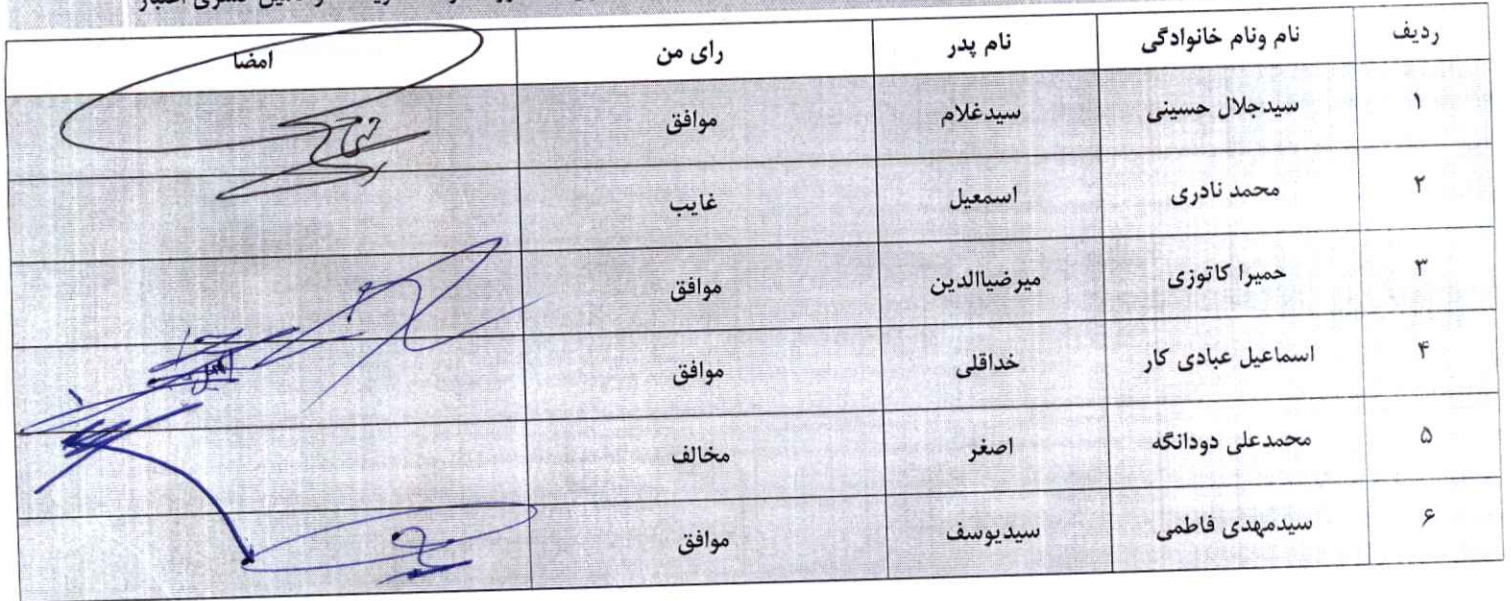 تامین کسری اعتبار
ردیف نام ونام خانوادگی نام پدر رای من امضا
۱ سیدجلال حسینی سیدغلام موافق
۲ محمد نادری اسمعیل غایب
۳ حمیرا کاتوزی میرضیاالدین موافق
۴ اسماعیل عبادی کار خداقلی موافق
۵ محمدعلی دودانگه اصغر مخالف
۶ سیدمهدی فاطمی سیدیوسف موافق